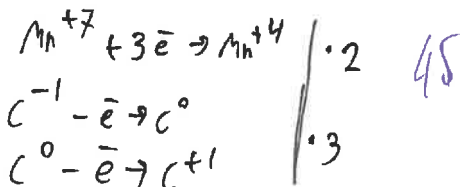 Mn⁺⁷ + 3ē → Mn⁺⁴ | ·2 45
C⁻¹ - ē → C⁰
C⁰ - ē → C⁺¹ | ·3